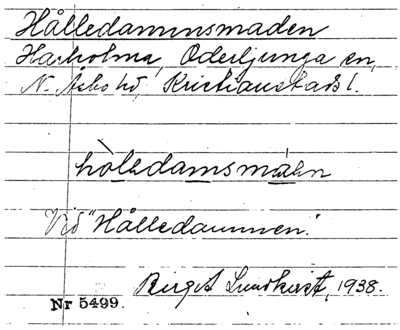 Hålledammsmaden
Harholma, Oderljunga sn,
N. Åsbo hd, Kristianstads l.
hòlledamsmáhn
Vid "Hålledammen".
Birgit Lundkvist, 1938.
Nr 5499.